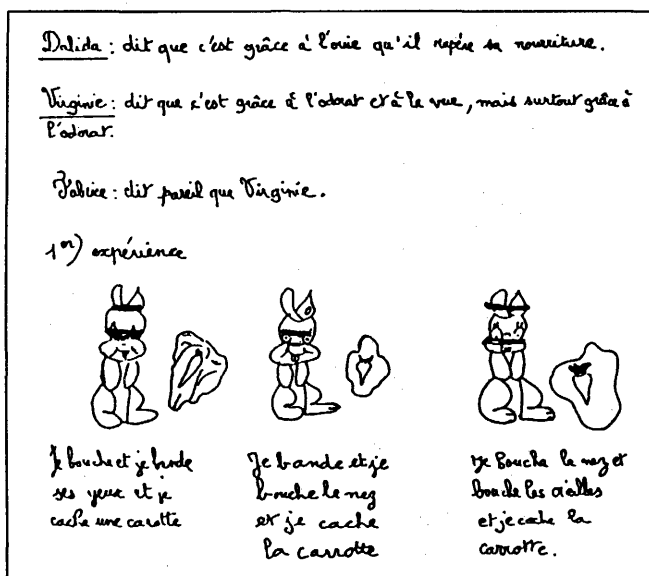 Dalida : dit que c'est grâce à l'ouie qu'il repére sa nourriture.
Virginie : dit que c'est grâce à l'odorat et à la vue, mais surtout grâce à
l'odorat.
Fabrice : dit pareil que Virginie.
1er) expérience
Je bouche et je bande
ses yeux et je
cache une carotte
Je bande et je
bouche le nez
et je cache
la carrotte
Je bouche le nez et
bouche les oreilles
et je cache la
carrotte.